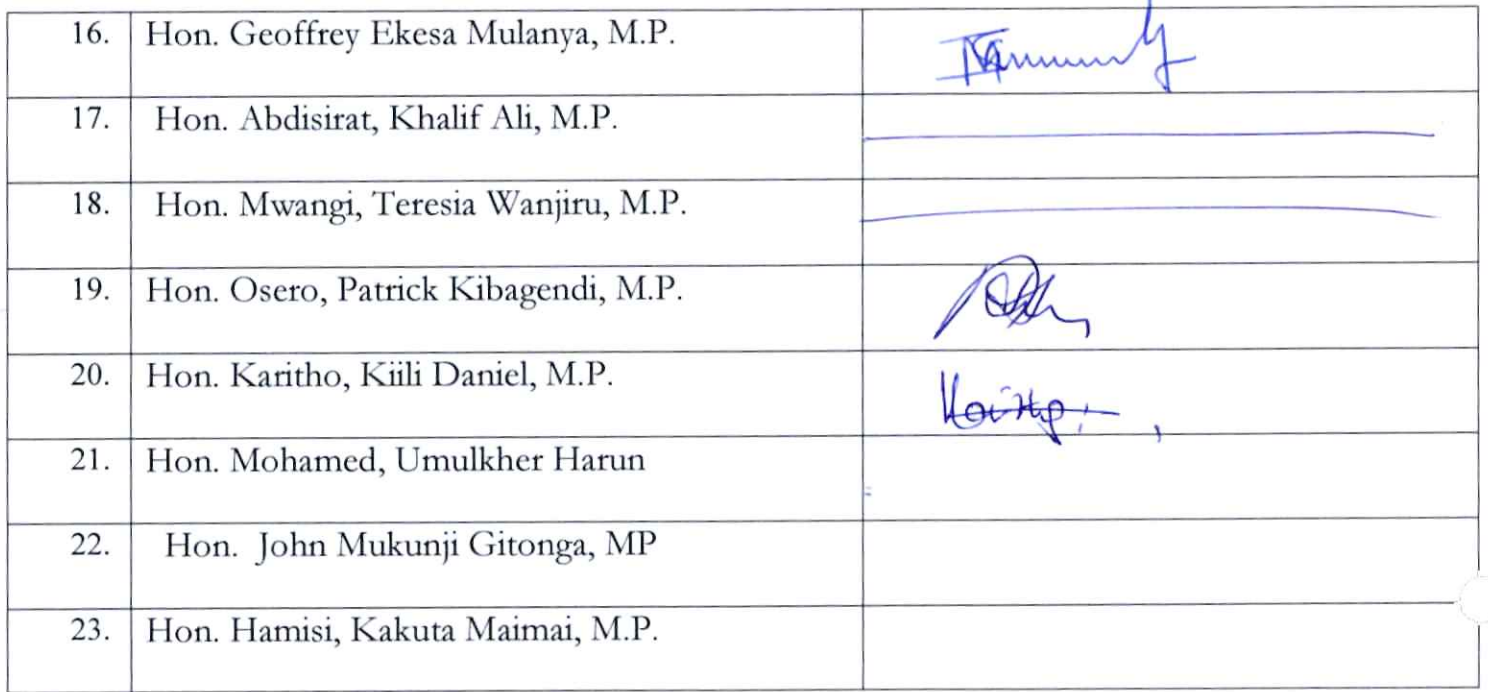 16. Hon. Geoffrey Ekesa Mulanya, M.P.
17. Hon. Abdisirat, Khalif Ali, M.P.
18. Hon. Mwangi, Teresia Wanjiru, M.P.
19. Hon. Osero, Patrick Kibagendi, M.P.
20. Hon. Karitho, Kiili Daniel, M.P.
21. Hon. Mohamed, Umulkher Harun
22. Hon. John Mukunji Gitonga, MP
23. Hon. Hamisi, Kakuta Maimai, M.P.